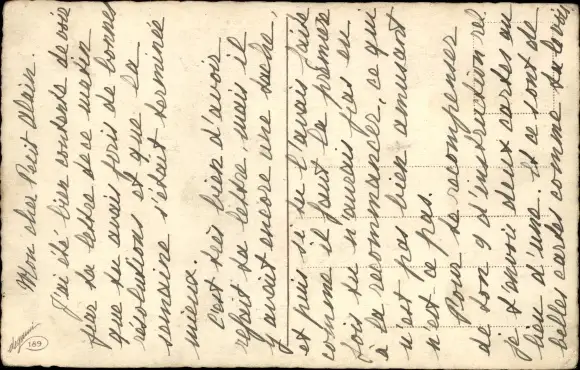 Mon cher Petit Alain.
J'ai été bien contente de voir
par ta lettre de ce matin
que tu avais pris de bonnes
résolutions et que la
semaine s'était terminée
mieux.
C'est très bien d'avoir
refait ta lettre, mais il
y avait encore une tache,
et puis si tu l'avais faite
comme il faut la première
fois tu n'aurais pas eu
à la recommencer, ce qui
n'est pas bien amusant
n'est ce pas.
Pour te recompenser
de ton 9 d'instruction rel
je t'envoie deux cartes au
lieu d'une. Et ce sont de
belles cartes comme tu le vois,
189